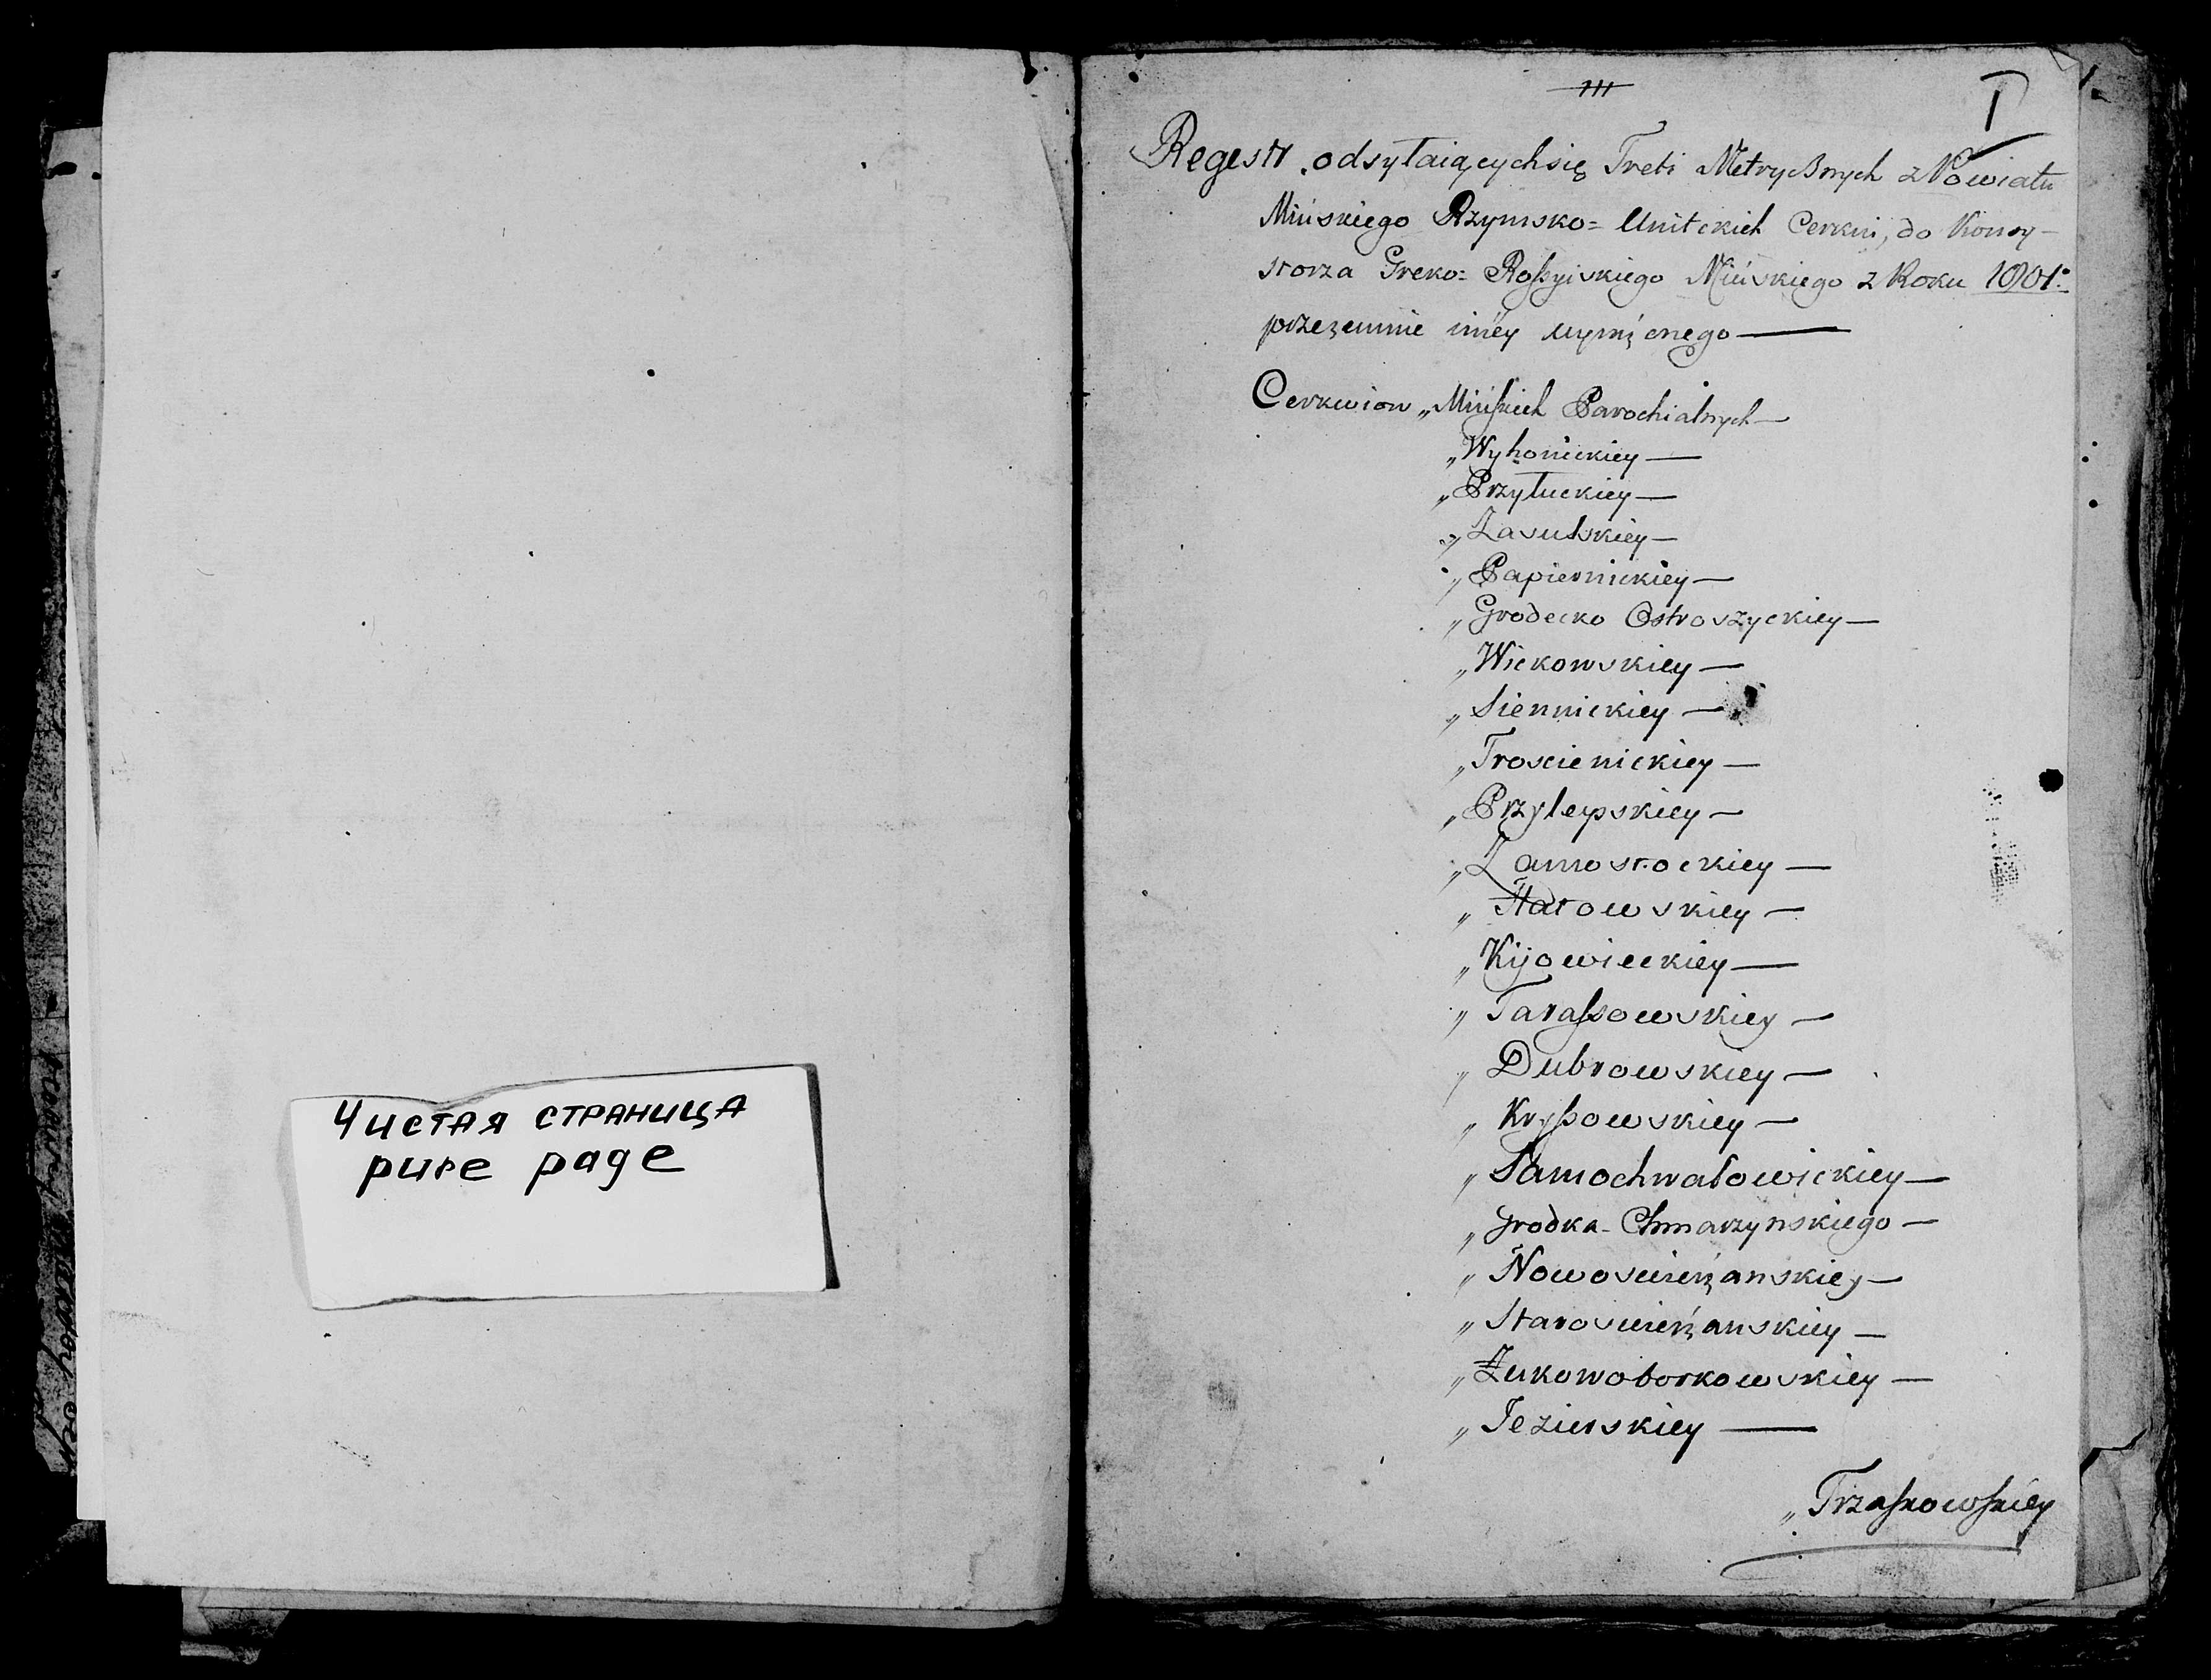 Чистая страница
pure page
III
I
Regestr odsyłaiących się Treti Metrycznych z Powiatu
Mińskiego Rzymsko= Unitckich Cerkwi, do Konsy-
storza Greko= Rossyiskiego Mińskiego z Roku 1801.
przezemnie niżey
Cerkwiow „Mińskich Parochialnych —
„Wyhonickiey —
„Przyłuckiey —
„Zasulskiey —
„Papiernickiey —
„Grodecko Ostroszyckiey —
„Wickowskiey —
„Siennickiey —
„Troscienickiey —
„Przylepskiey —
„Zamostockiey —
„Kijowieckiey —
„Tarassowskiey —
„Dubrowskiey —
„Kryssowskiey —
„Samochwałowickiey —
„Grodka-Chmarzynskiego —
„Nowoswierżanskiey —
„Staroswierżanskiey —
„Żukowoborkowskiey —
„Jezierskiey —
„Trzaskowskiey